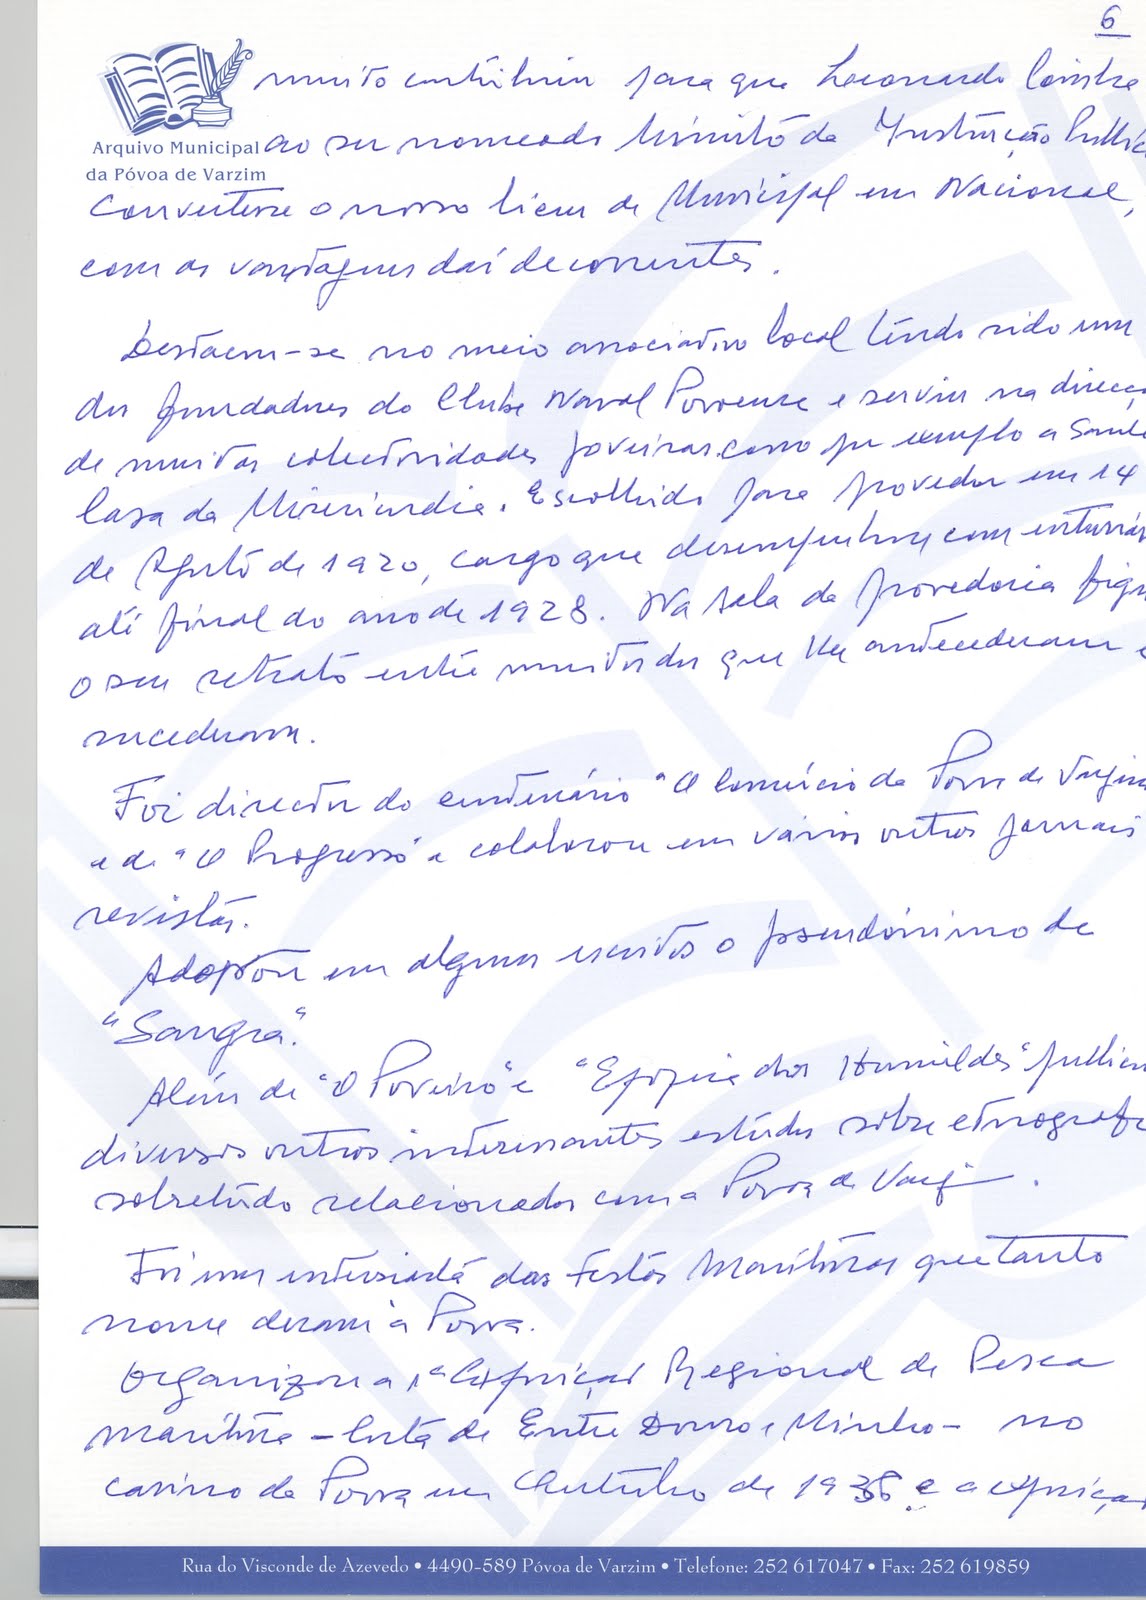 6
muito contribuiu para que Leonardo Coimbra
Arquivo Municipal
da Póvoa de Varzim
ao ser nomeado Ministro da Instrução Públic
convertesse o nosso liceu de Municipal em Nacional,
com as vantagens daí decorrentes.
Destacou-se no meio associativo local tendo sido um
dos fundadores do Clube Naval Povoense e serviu na direcç
de muitas colectividades poveiras como por exemplo a Santa
Casa da Misericordia. Escolhido para provedor em 14
de Agosto de 1920, cargo que desempenhou com entusiás
até final do ano de 1928. Na sala da provedoria figu
o seu retrato entre muitos dos que lhe antecederam e
sucederam.
Foi director do centenário "O Comércio da Póvoa de Varzim
e de "O Progresso" e colaborou em vários outros jornais
revistas.
Adoptou em alguns escritos o pseudónimo de
"Sangra".
Além de "O Poveiro" e "Epopeia dos Humildes" publicou
diversos outros interessantes estudos sobre etnografia
sobretudo relacionados com a Póvoa de Varzim.
Foi um entusiasta das Festas Marítimas que tanto
nome deram à Póvoa.
Organizou a 1ª Exposição Regional de Pesca
Marítima - Costa de Entre Douro e Minho - no
casino da Póvoa em Outubro de 1938 e a exposiçã
Rua do Visconde de Azevedo • 4490-589 Póvoa de Varzim • Telefone: 252 617047 • Fax: 252 619859